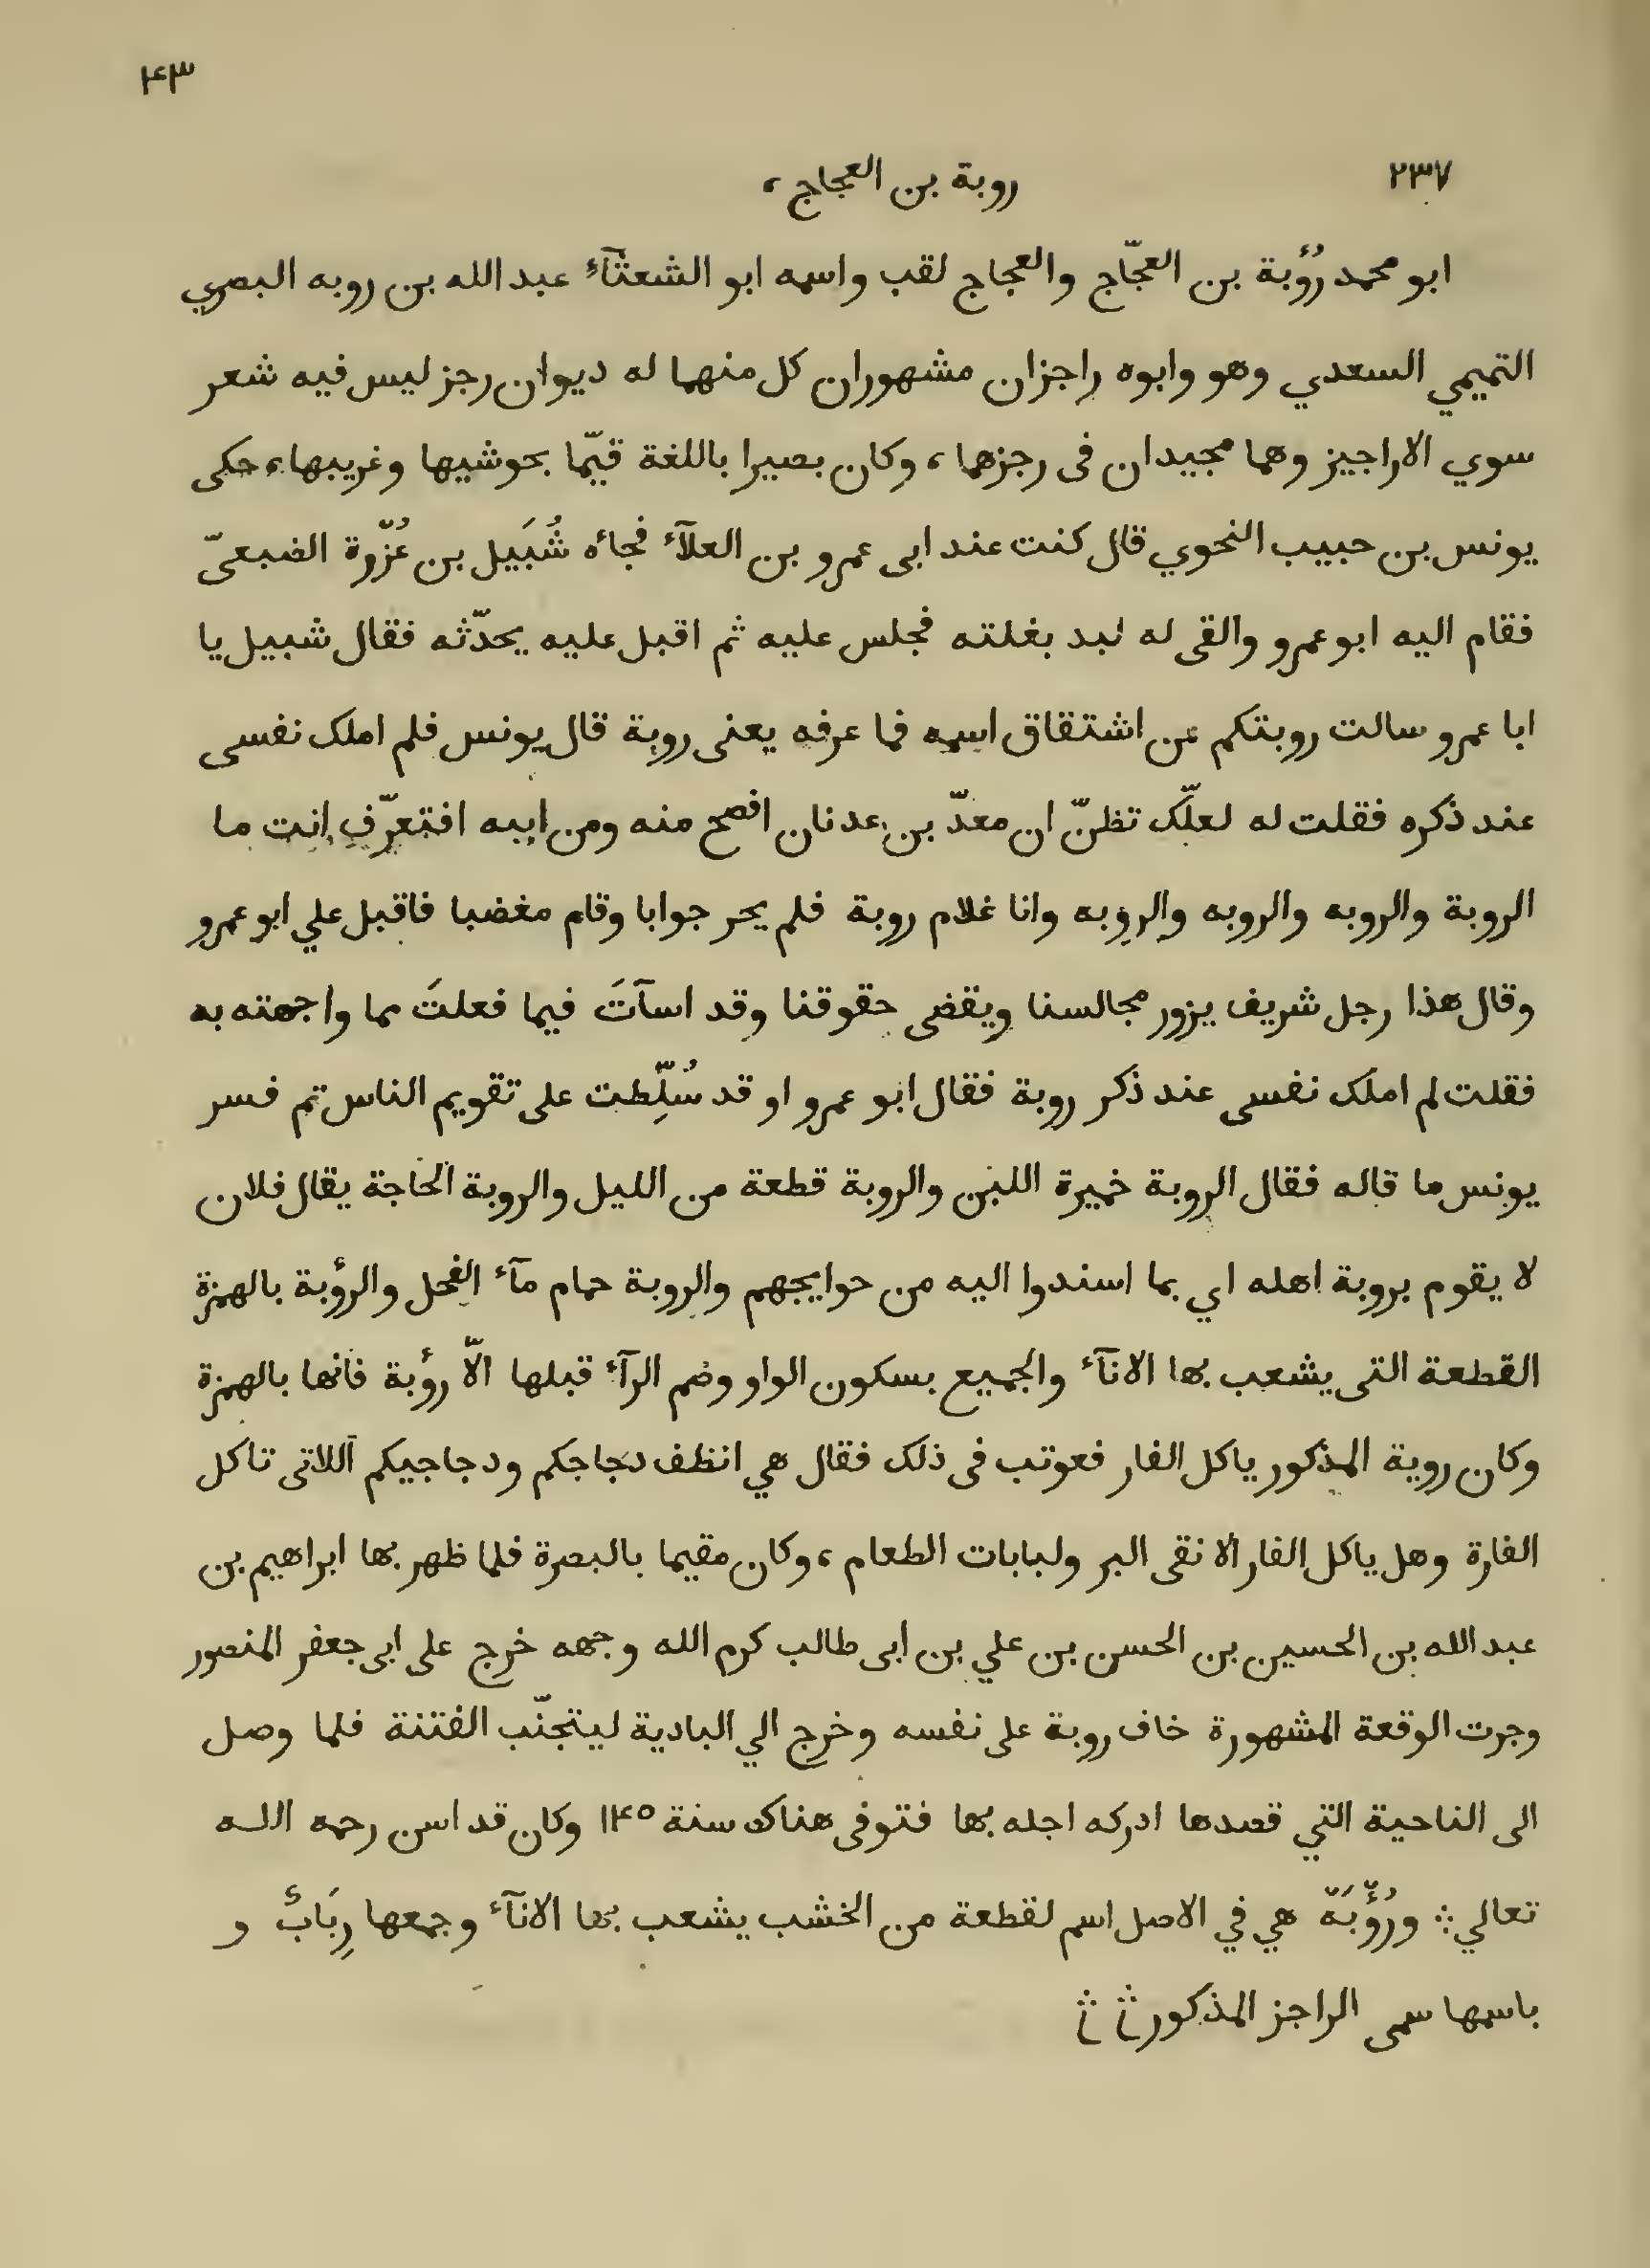 ٤٣
٢٣٧
روبة بن العجاج،
ابو محمد رُؤبة بن العجّاج والعجاج لقب واسمه ابو الشعثآء عبد الله بن روبه البصري
التميمي السعدي وهو وابوه راجزان مشهوران كل منهما له ديوان رجز ليس فيه شعر
سوي الاراجيز وهما مجيدان فى رجزهما، وكان بصيرا باللغة قيّما بحوشيها وغريبها، حكى
يونس بن حبيب النحوي قال كنت عند ابى عمرو بن العلآء فجاه شُبَيل بن عُزّوة الضبعىّ
فقام اليه ابو عمرو والقى له لبد بغلته فجلس عليه ثم اقبل عليه يحدّثه فقال شبيل يا
ابا عمرو سالت روبتكم عن اشتقاق اسمه فما عرفه يعنى روبة قال يونس فلم املك نفسى
عند ذكره فقلت له لعلّك تظنّ ان معدّ بن عدنان افصح منه ومن ابيه افتعرّف انت ما
الروبة والروبه والروبه والروبه وانا غلام روبة فلم يحر جوابا وقام مغضبا فاقبل علي ابو عمرو
وقال هذا رجل شريف يزور مجالسنا ويقضى حقوقنا وقد اسآتَ فيما فعلتَ مما واجهته به
فقلت لم املك نفسى عند ذكر روبة فقال ابو عمرو او قد سُلِّطت على تقويم الناس ثم فسر
يونس ما قاله فقال الروبة خميرة اللبن والروبة قطعة من الليل والروبة الحاجة يقال فلان
لا يقوم بروبة اهله اي بما اسندوا اليه من حوايجهم والروبة حمام مآء الفحل والرؤبة بالهمزة
القطعة التى يشعب بها الانآء والجميع بسكون الواو وضم الرآء قبلها الاّ رؤبة فانها بالهمزة
وكان روبة المذكور ياكل الفار فعوتب فى ذلك فقال هي انظف دجاجكم ودجاجيكم اللاتى تاكل
الفارة وهل ياكل الفار الا نقى البر ولبابات الطعام، وكان مقيما بالبصرة فلما ظهر بها ابراهيم بن
عبد الله بن الحسين بن الحسن بن علي بن ابى طالب كرم الله وجهه خرج على ابى جعفر المنصور
وجرت الوقعة المشهورة خاف روبة على نفسه وخرج الي البادية ليتجنّب الفتنة فلما وصل
الى الناحية التي قصدها ادركه اجله بها فتوفى هناك سنة ١٤٥ وكان قد اسن رحمه الله
تعالي ورُؤْبَة هي في الاصل اسم لقطعة من الخشب يشعب بها الانآء وجمعها رِبَابٌ و
باسمها سمى الراجز المذكور